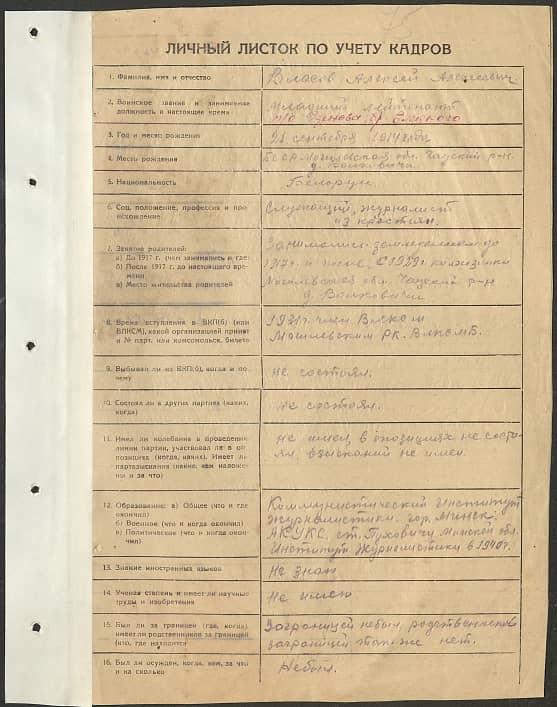 ЛИЧНЫЙ ЛИСТОК ПО УЧЕТУ КАДРОВ
1. Фамилия, имя и отчество
Власов Алексей Алексеевич.
2. Воинское звание и занимаемая
должность в настоящее время
Младший лейтенант
3. Год и месяц рождения
4. Место рождения
БССР Могилевская обл. Чаусский р-н.
5. Национальность
Белорус.
6. Соц. положение, профессия и про-
исхождение
Служащий, журналист
из крестьян.
7. Занятие родителей:
а) До 1917 г. (чем занимались и где)
б) После 1917 г. до настоящего вре-
мени
в) Место жительства родителей
Занимались земледелием до
1917г. и после. С 1929г колхозники
Могилевская обл. Чаусский р-н
8. Время вступления в ВКП(б) (или
ВЛКСМ), какой организацией принят
и № парт. или комсомольск. билета
1931г. член ВЛКСМ
Могилевским РК. ЛКСМБ.
9. Выбывал ли из ВКП(б), когда и по-
чему
не состоял.
10. Состоял ли в других партиях (каких,
когда)
не состоял.
11. Имел ли колебания в проведении
линии партии, участвовал ли в оп-
позициях (когда, каких). Имеет ли
партвзыскания (какие, кем наложе-
ны и за что)
не имел, в опозициях не состо-
ял, взысканий не имел.
12. Образование: а) Общее (что и где
окончил)
б) Военное (что и когда окончил)
в) Политическое (что и когда окон-
чил)
Коммунистический Институт
Журналистики. гор. Минск.
АКУКС, ст. Пуховичи Минской обл.
Институт Журналистики в 1940г.
13. Знание иностранных языков
Не знаю
14. Ученая степень и имеет ли научные
труды и изобретения
Не имею
15. Был ли за границей (где, когда),
имеет ли родственников за границей
(кто, где находится)
Заграницей небыл, родственников
заграницей также нет.
16. Был ли осужден, когда, кем, за что
и на сколько
Небыл.